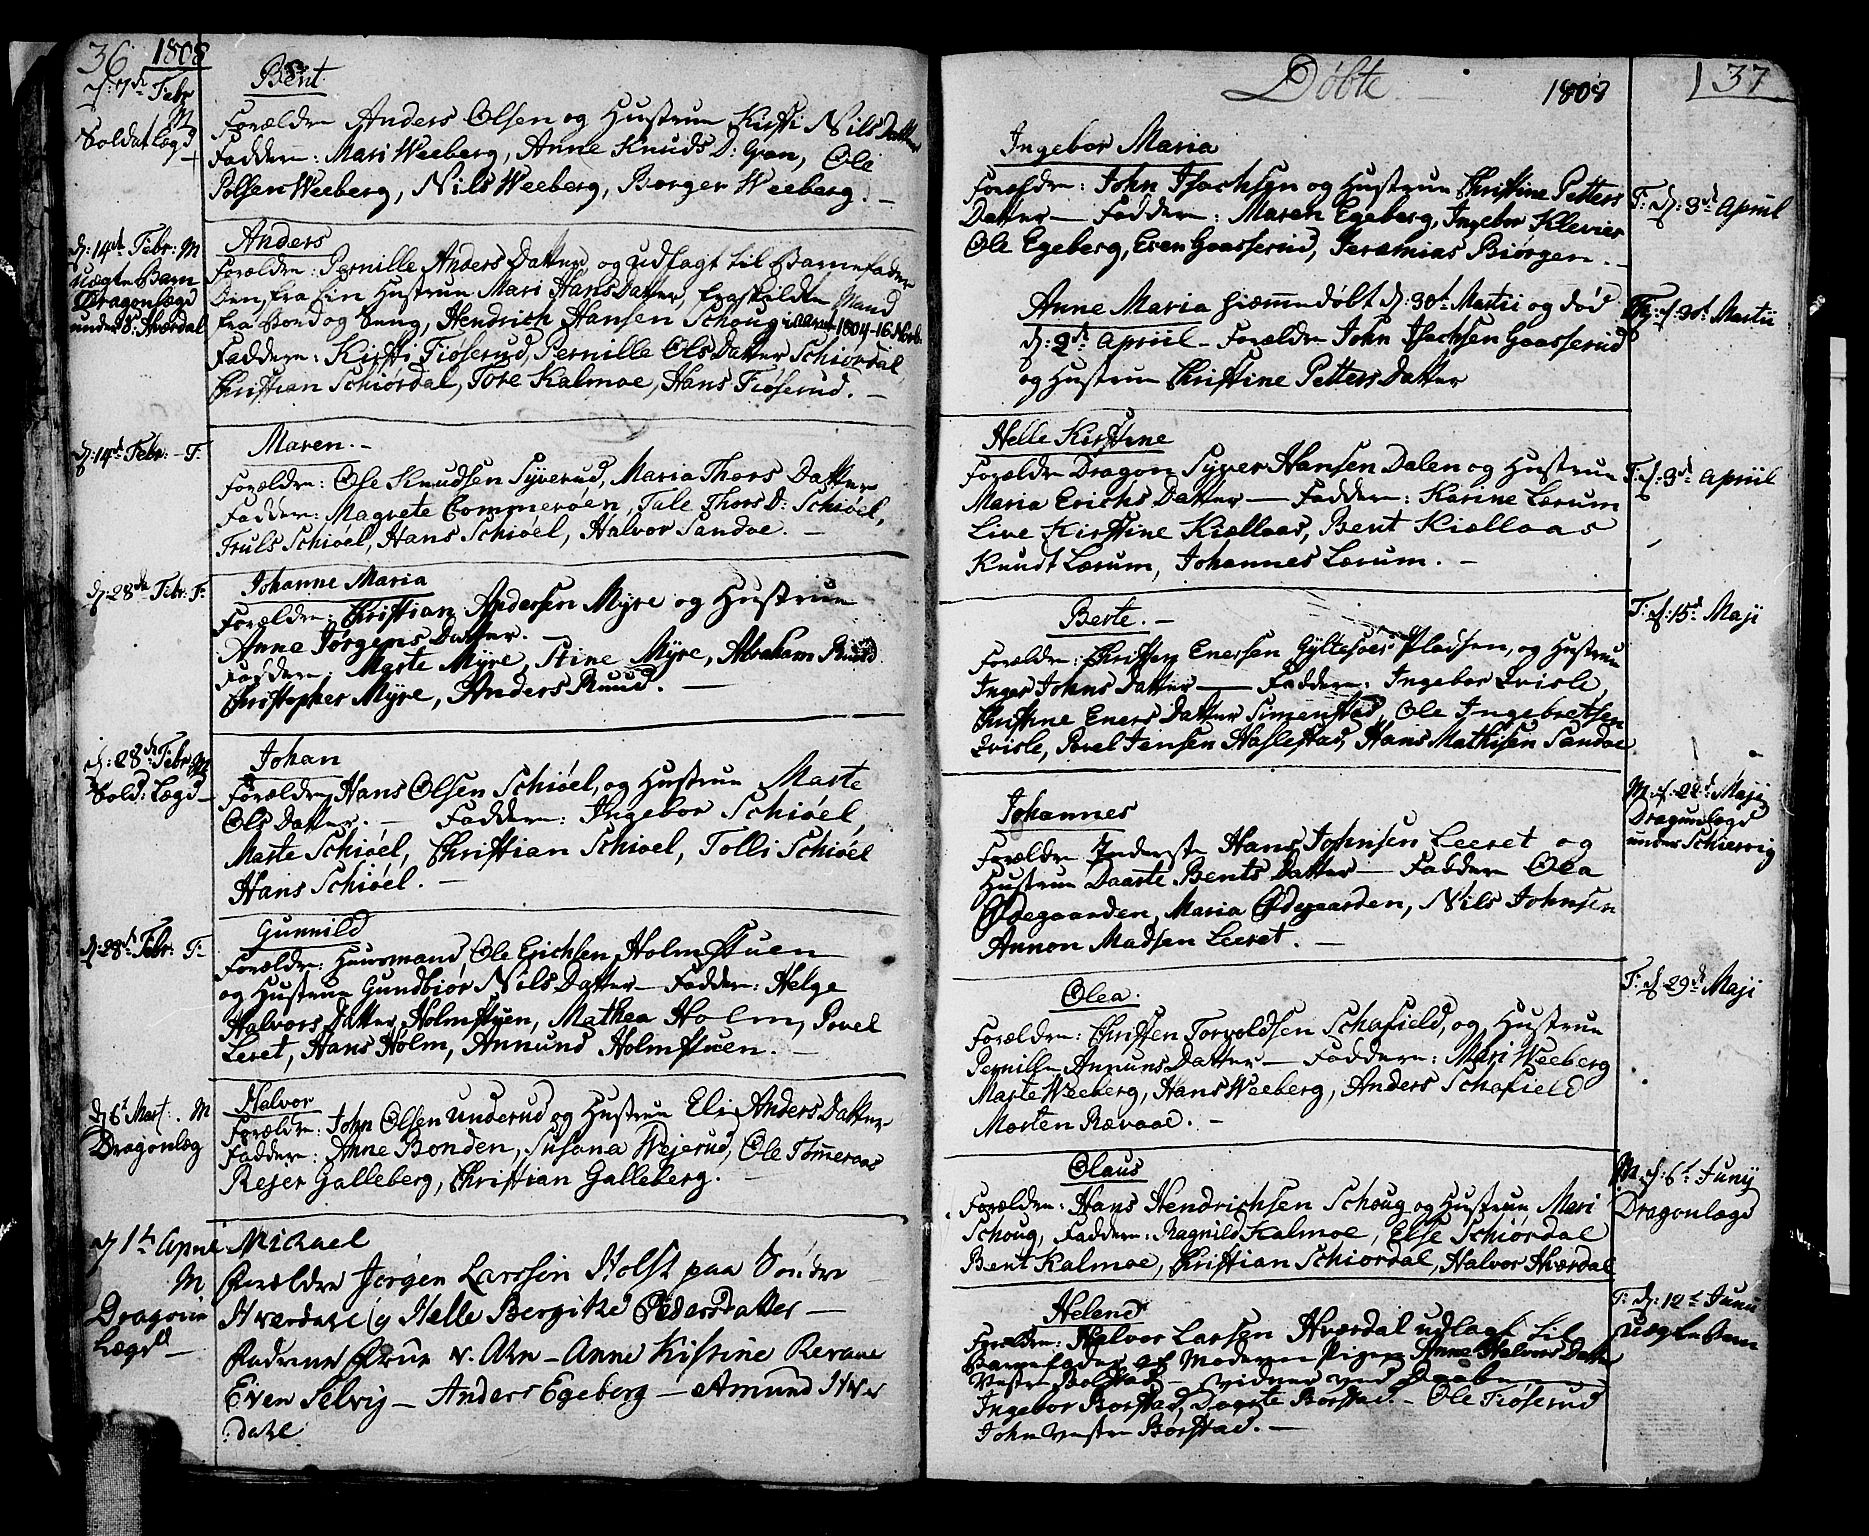 36 1808
d: 7de Febr
M
Soldat Lægd
Bent
Forældre Anders Olsen og Hustrue Kirsti Nils Datter
Faddere: Mari Weeberg, Anne Knuds D: Gran, Ole
Polsen Weeberg, Nils Weeberg, Borger Weeberg. -
d: 14de Febr: M
uægte Barn
Dragonlægd
under S: Hværdal
Anders
Forældre: Pernille Anders Datter og udlagt til Barnefader
Den, fra sin Hustrue Mari Hans Datter, fraskildte Mand
fra Bord og Seng, Hendrich Hansen Schoug i Aaret 1804-16 Novb:
Faddere: Kirsti Fiøserud, Pernille Ols Datter Schiørdal,
Christian Schiørdal, Tore Kalmoe, Hans Fiøserud. -
d: 14de Febr: - F.
Maren. -
Forældre: Ole Knudsen Syverud, Maria Thors Datter
Faddere: Magrete Commerøen, Tale Thors D: Schiøel,
Truls Schiøel, Hans Schiøel, Halvor Sandoe. -
d: 28de Febr: F:
Johanne Maria
Forældre: Christian Andersen Myre og Hustrue
Anne Jørgens Datter.
Faddere: Marte Myre, Stine Myre, Abraham Ruud
Christopher Myre, Anders Ruud. -
d: 28de Febr M
Sold: Lægd -
Johan
Forældre, Hans Olsen Schiøel, og Hustrue Marte
Ols Datter. - Faddere: Ingebor Schiøel,
Marte Schiøel, Christian Schiøel, Tolli Schiøel
Hans Schiøel. -
d: 28de Febr: F:
Gunnild
Forældre: Huusmand Ole Erichsen Holmstuen
og Hustrue Gundbiør Nils Datter - Faddere: Helge
Halvors Datter Holmstuen, Mathea Holm, Povel
Leret, Hans Holm, Annund Holmstuen. -
d: 6t Mart: M
Dragonlæg
Halvor
Forældre: John Olsen Underud og Hustrue Eli Anders Datter
Faddere: Anne Bonden, Susana Wejerud, Ole Tømeraas
Rejer Galleberg, Christian Galleberg. -
M
Dragoun
Lægd -
Michael
Forældre Jørgen Larssen Holst paa Søndre
Hværdale og Helle Bergitte Pedersdatter -
Anne Kistine Revaae
Even Selvig - Anders Egeberg - Amund Hvær
dale
Døbte - 1808
37
Ingebor Maria
Forældre: John Isachsen og Hustrue Christine Petters
Datter - Faddere: Maren Egeberg, Ingebor Klevier
Ole Egeberg, Even Gaasserud, Jeramias Biørgen. -
F: d: 3de Apriil
Anne Maria hiemmedøbt d: 30t Martii og død
d: 2de Apriil - Forældre John Isachsen Gaasserud
og Hustrue Christine Petters Datter
F: d: 30t Martii
Helle Kirstine
Forældre Dragon Syver Hansen Dalen og Hustrue
Maria Erichs Datter - Faddere: Karine Lærum
Live Kirstine Kiellaas, Bent Kiellaas
Knudt Lærum, Johannes Lærum. -
F: d: 3de Apriil
Berte. -
Forældre: Christen Enersen Gyltesøes Pladsen, og Hustrue
Inger Johns Datter - Faddere: Ingebor Qvisle,
Christine Eners Datter Simenstad, Ole Ingebretsen
Qvisle, Povel Jensen Haslestad, Hans Mathisen Sandoe
F: d: 15d Maji
Johannes
Forældre Inderste Hans Johnsen Leeret og
Hustrue Daarte Bents Datter - Faddere Olea
Ødegaarden, Maria Ødegaarden, Nils Johnsen
Annon Madsen Leeret. -
M: d: 22d Maji
Dragunlægd
under Schiervig
Olea.
Forældre: Christen Torvoldsen Schafield, og Hustrue
Pernille Annuns Datter - Faddere: Mari Weeberg
Marte Weeberg, Hans Weeberg, Anders Schafield
Morten Rævaae. -
F: d: 29de Maji
Olaus
Forældre: Hans Hendrichsen Schoug og Hustrue Mari
Schoug, Faddere: Ragnild Kalmoe, Else Schiørdal
Bent Kalmoe, Christian Schiordal, Halvor Hværdal
M: d: 6t Junij
Dragonlægd
Helene
Forældre: Halvor Larsen Hværdal udlagt til
Barnefader af Moderen Pigen Anne Halvors Datter
Vestre Bolstad - vidner ved Daaben
Ingebor Borstad, Dorte Borstad. - Ole Fiøserud
John vestre Børstad. -
F: d: 12t Junii
uægte Barn